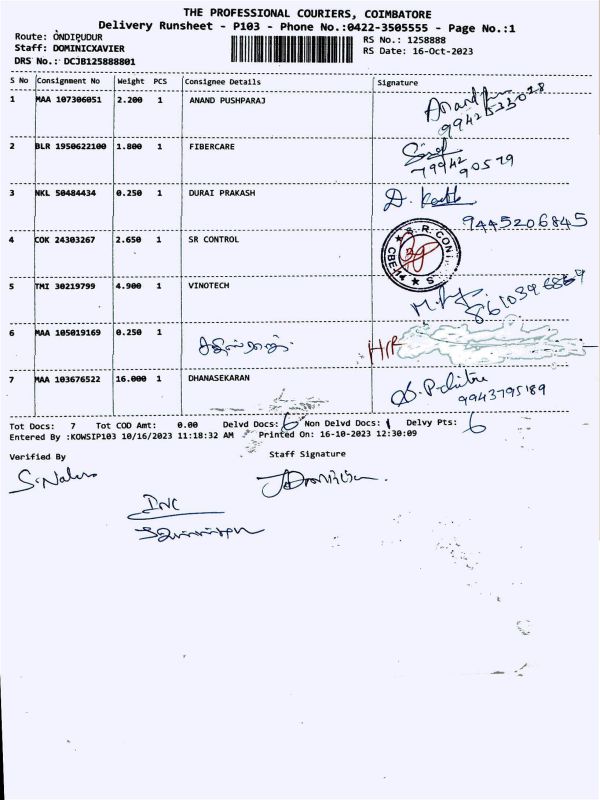 THE PROFESSIONAL COURIERS, COIMBATORE
Delivery Runsheet - P103 - Phone No.:0422-3505555 - Page No.:1
Route: ONDIPUDUR RS No.: 1258888
Staff: DOMINICXAVIER RS Date: 16-Oct-2023
DRS No.: DCJB125888801
S No Consignment No Weight PCS Consignee Details Signature
1 MAA 107306051 2.200 1 ANAND PUSHPARAJ
2 BLR 1950622100 1.800 1 FIBERCARE
79942 90579
3 NKL 50484434 0.250 1 DURAI PRAKASH
9445206845
4 COK 24303267 2.650 1 SR CONTROL
5 TMI 30219799 4.900 1 VINOTECH
6 MAA 105019169 0.250 1
7 MAA 103676522 16.000 1 DHANASEKARAN
9943795189
Tot Docs: 7 Tot COD Amt: 0.00 Delvd Docs: 6 Non Delvd Docs: 1 Delvy Pts: 6
Entered By :KOWSIP103 10/16/2023 11:18:32 AM Printed On: 16-10-2023 12:30:09
Verified By Staff Signature